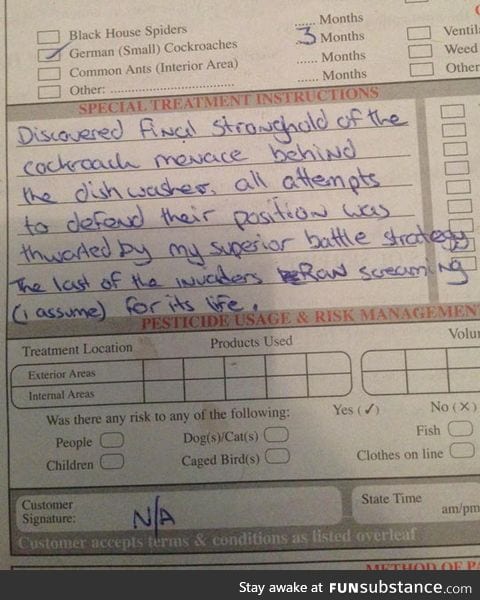 ...... Months
Black House Spiders 3 Months Ventil
German (Small) Cockroaches ...... Months Weed
Common Ants (Interior Area) ...... Months Other
Other: ..............................
SPECIAL TREATMENT INSTRUCTIONS
Discovered Final Stronghold of the
cockroach menace behind
the dishwasher. all attempts
to defend their position was
thwarted by my superior battle strategy
The last of the invaders Ran screaming
(i assume) for its life.
PESTICIDE USAGE & RISK MANAGEMEN
Treatment Location Products Used Volu
Exterior Areas
Internal Areas
Was there any risk to any of the following: Yes (✓) No (✕)
People Dog(s)/Cat(s) Fish
Children Caged Bird(s) Clothes on line
Customer State Time
Signature: N/A am/pm
Customer accepts terms & conditions as listed overleaf
METHOD OF PA
Stay awake at FUNsubstance.com